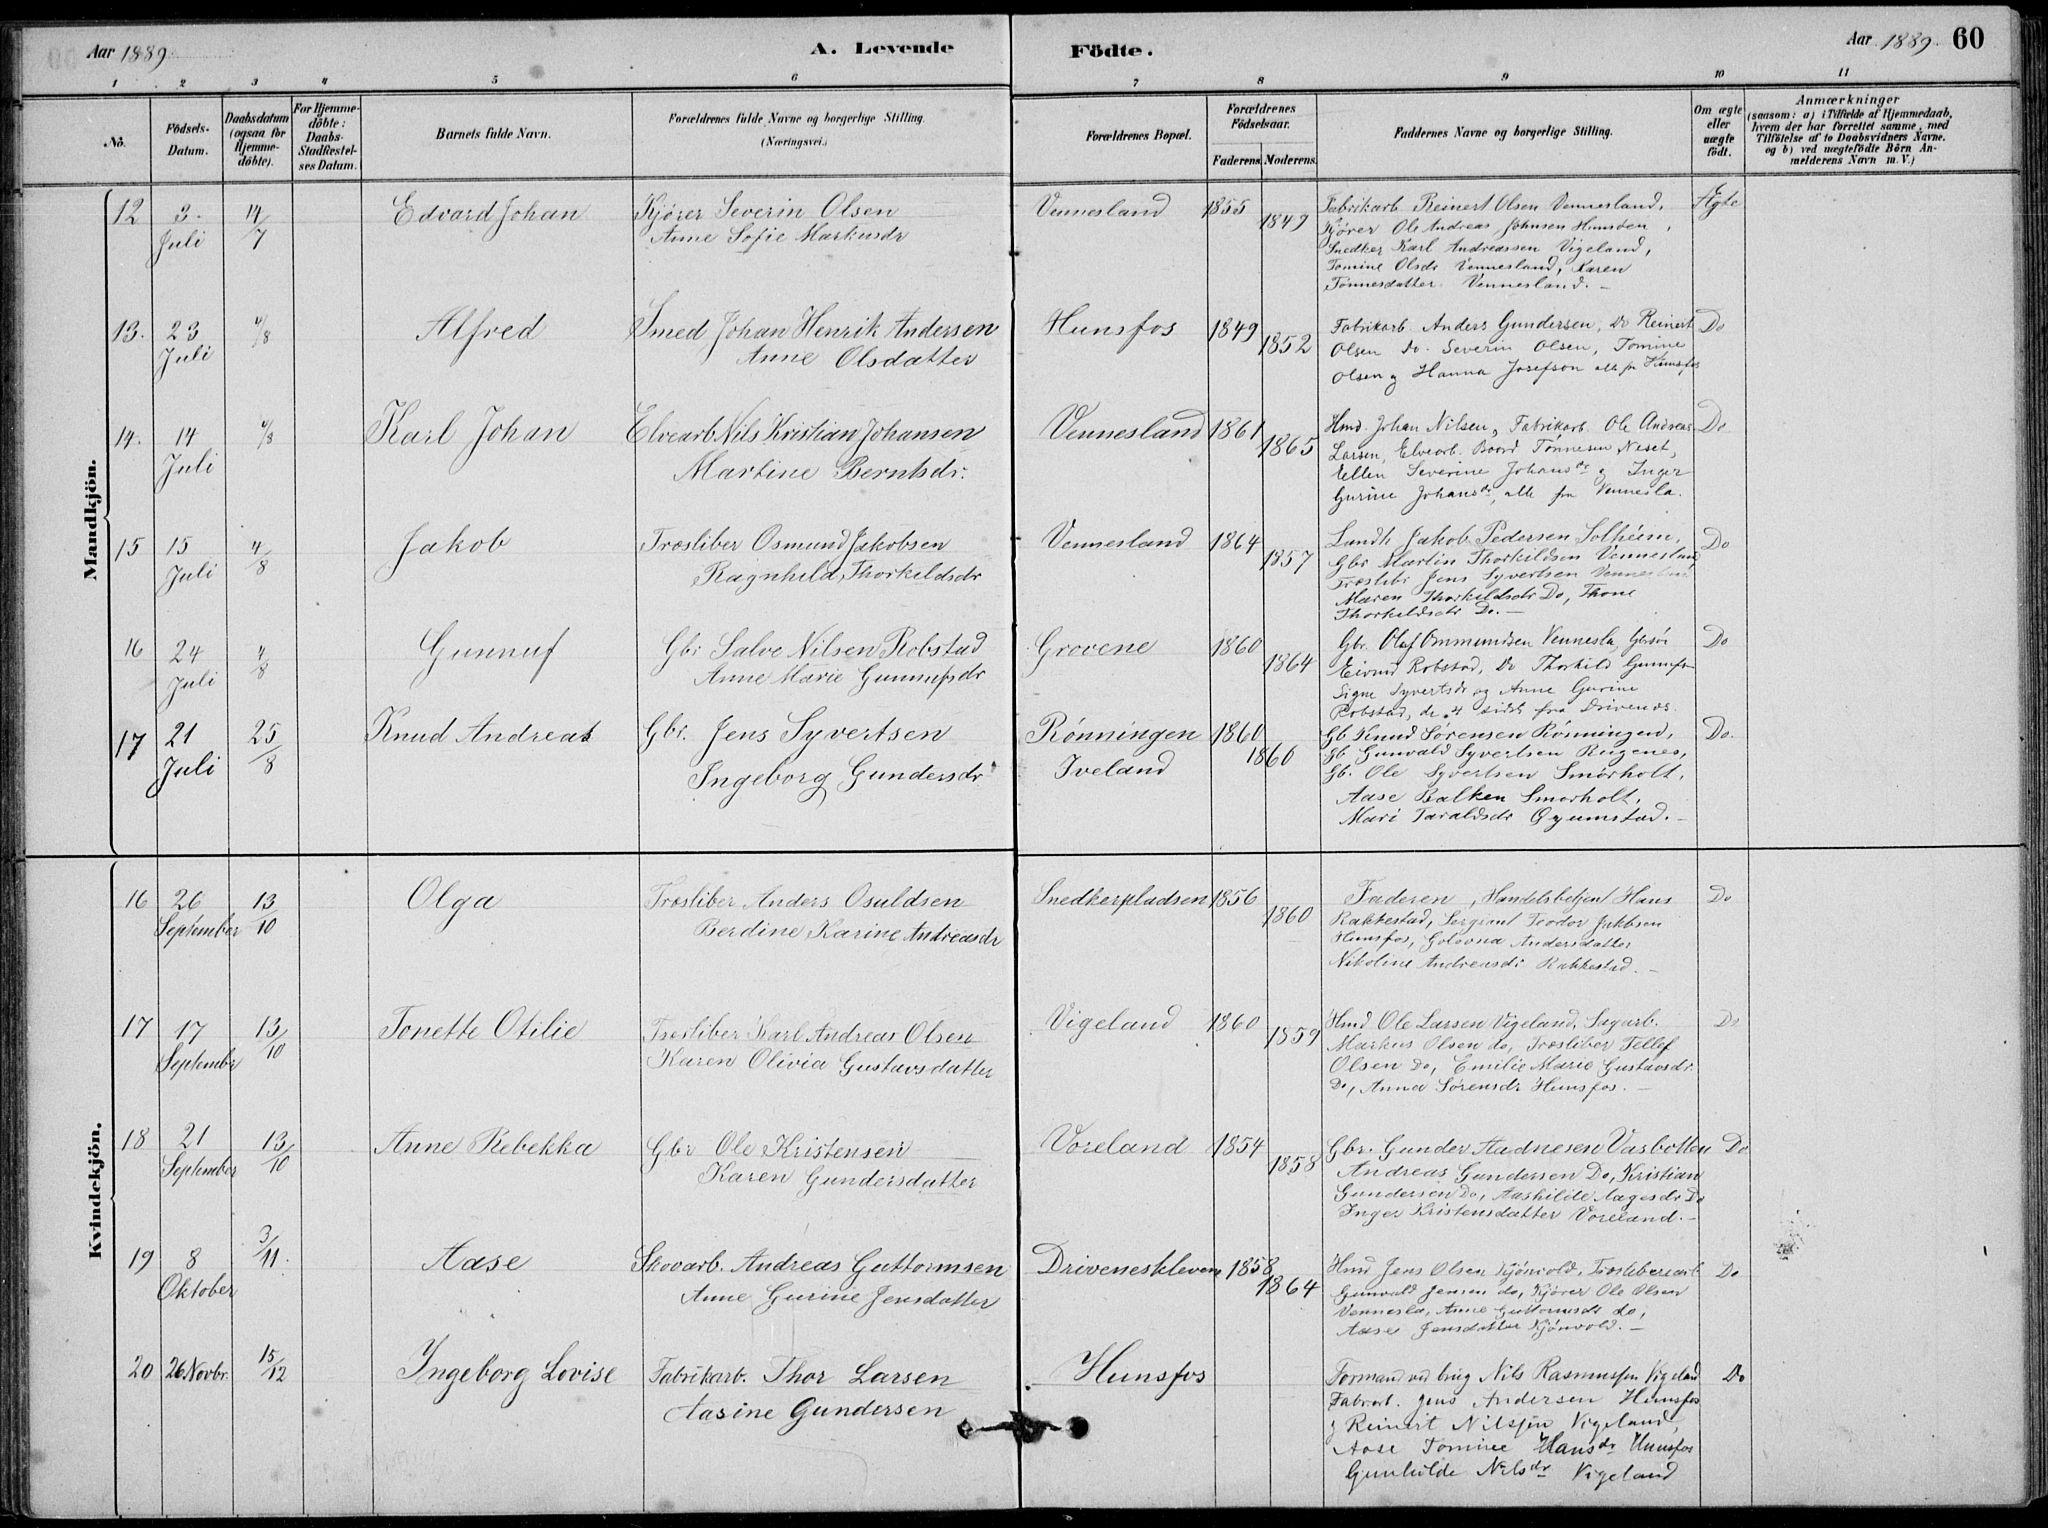 Aar 1889.
A. Levende Födte.
Aar 1889. 60
1 2 3 4 5 6 7 8 9 10 11
No.
Födsels-Datum.
Daabsdatum (ogsaa for Hjemme-döbte).
For Hjemme-döbte: Daabs-Stadfæstel-ses Datum.
Barnets fulde Navn.
Forældrenes fulde Navne og borgerlige Stilling.
(Næringsvei.)
Forældrenes Bopæl.
Forældrenes Födselsaar.
Faderens. Moderens.
Faddernes Navne og borgerlige Stilling.
Om ægte eller uægte födt.
Anmærkninger
(saasom: a) i Tilfælde af Hjemmedaab, hvem der har forrettet samme, med Tilföielse af to Daabsvidners Navne. og b) ved uægtefödte Börn Anmelderens Navn m. V.)
Mandkjön.
12 3. Juli 14/7 Edvard Johan
Kjører Severin Olsen
Anne Sofie Markusdr
Vennesland 1855 1849
Fabrikarb. Reinert Olsen Vennesland,
Kjører Ole Andreas Johnsen Hunsøen,
Snedker Karl Andreassen Vigeland,
Tomine Olsdr Vennesland, Karen
Tønnesdatter Vennesland. –
Ægte
13. 23 Juli 4/8 Alfred
Smed Johan Henrik Andersen
Anne Olsdatter
Hunsfos 1849 1852
Fabrikarb. Anders Gundersen, Do Reinert
Olsen Do. Severin Olsen, Tomine
Olsen og Hanna Josefson alle fr Hunsfos
Do
14. 14 Juli 4/8 Karl Johan
Elvearb Nils Kristian Johansen
Martine Berntsdr.
Vennesland 1861 1865
Hmd. Johan Nilsen, Fabrikarb. Ole Andreas
Larsen, Elvearb. Baard Tønnesen Neset,
Ellen Severine Johansdr og Inger
Gurine Johansdr, alle fra Vennesla.
Do
15 15 Juli 4/8 Jakob
Træsliber Osmund Jakobsen
Ragnhild Thorkildsdr
Vennesland 1864 1857
Landh. Jakob Pedersen Solheim,
Gbr Martin Thorkildsen Vennesland
Træslibr Jens Syvertsen Vennesland
Maren Thorkildsdr Do, Thone
Thorkildsdr Do. –
Do
16 24 Juli 4/8 Gunnuf
Gbr Salve Nilsen Robstad
Anne Marie Gunnufsdr
Grovene 1860 1864
Gbr. Olaf Ommundsen Vennesla, Gbsøn
Eivind Robstad, Do Thorkild Gunnufs
Signe Syvertsdr og Anne Gurine
Robstad, de 4 sidst fra Drivenes.
Do
17 21 Juli 25/8 Knud Andreas
Gbr. Jens Syvertsen
Ingeborg Gundersdr
Rønningen Iveland 1860 1860
Gb Knud Sørensen Rønningen,
Gb Gunvald Syvertsen Rugenes,
Gb. Ole Syvertsen Smørholt,
Aase Balken Smørholt,
Mari Taraldsdr Øyumstad. –
Do.
Kvindekjön.
16 26 September 13/10 Olga
Træsliber Anders Osuldsen
Berdine Karine Andreasdr
Snedkerpladsen 1856 1860
Faderen, Handelsbetjent Hans
Rakkestad, Sergiant Teodor Jakobsen
Hunsfos, Golovna Andersdatter
Nikoline Andreasdr Rakkestad. –
Do
17 17 Septembr 13/10 Tonette Otilie
Træsliber Karl Andreas Olsen
Karen Olivia Gustavsdatter
Vigeland 1860 1859
Hmd Ole Larsen Vigeland, Sagarb.
Markus Olsen do, Træsliber Tellef
Olsen Do, Emilie Marie Gustavsdr
Do, Anna Sørensdr Hunsfos. –
Do
18 21 September 13/10 Anne Rebekka
Gbr Ole Kristensen
Karen Gundersdatter
Voreland 1854 1858
Gbr. Gunder Aadnesen Vasbotten
Andreas Gundersen Do, Kristian
Gundersen Do, Aashilde Aagesdr Do
Inger Kristensdatter Voreland. –
Do
19 8 Oktober 3/11. Aase
Skovarb. Andreas Guttormsen
Anne Gurine Jensdatter
Driveneskleven 1858 1864
Hmd Jens Olsen Kjønvold, Træsliberiarb
Gunvald Jensen do, Kjører Ole Olsen
Vennesla, Anne Guttormsdr do,
Aase Jensdatter Kjønvold. –
Do
20 26 Novbr. 15/12 Ingeborg Lovise
Fabrikarb. Thor Larsen
Aasine Gundersen
Hunsfos
Formand ved brug Nils Rasmussen Vigeland
Fabrarb. Jens Andersen Hunsfos
og Reinert Nilsen Vigeland,
Aase Tomine Hansdr Hunsfos
Gunhilde Nilsdr Vigeland
Do